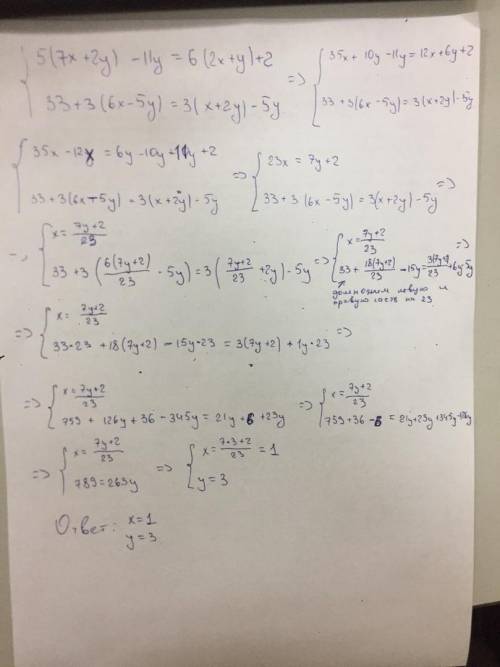 { 5(7x+2y) - 11y = 6(2x+y)+2
33+3(6x-5y) = 3(x+2y)-5y =>
{ 35x + 10y - 11y = 12x + 6y + 2
33+3(6x-5y) = 3(x+2y)-5y
{ 35x - 12x = 6y - 10y + 11y + 2
33+3(6x-5y) = 3(x+2y)-5y =>
{ 23x = 7y+2
33+3(6x-5y) = 3(x+2y)-5y =>
{ x = (7y+2)/23
33+3(6(7y+2)/23 - 5y) = 3((7y+2)/23 + 2y) - 5y =>
{ x = (7y+2)/23
33 + 18(7y+2)/23 - 15y = 3(7y+2)/23 + 6y - 5y =>
домножаем левую и
правую часть на 23
=> { x = (7y+2)/23
33·23 + 18(7y+2) - 15y·23 = 3(7y+2) + 1y·23 =>
=> { x = (7y+2)/23
759 + 126y + 36 - 345y = 21y + 6 + 23y
=> { x = (7y+2)/23
759+36-6 = 21y+23y+345y-126y
=> { x = (7y+2)/23
789 = 263y
=> { x = (7·3+2)/23 = 1
y = 3
Ответ: x=1
y=3